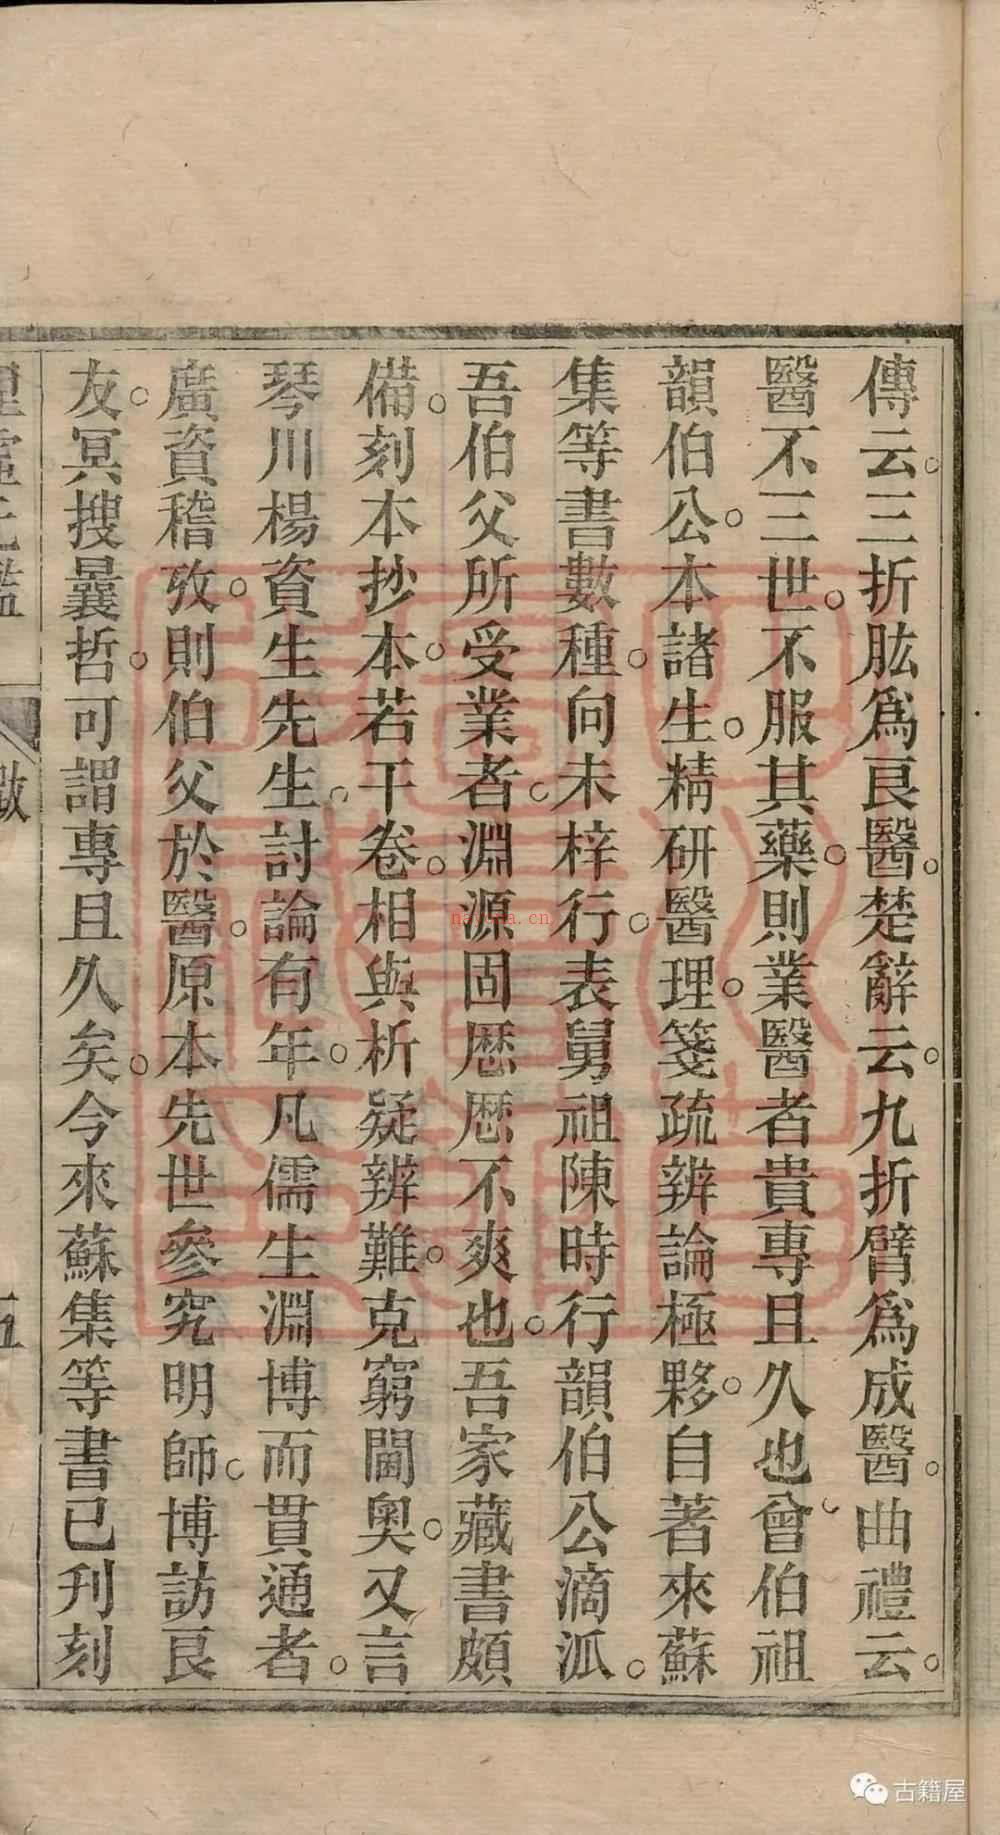 傳云三折肱爲良醫楚辭云九折臂爲成醫曲禮云
醫不三世不服其藥則業醫者貴專且久也曾伯祖
韻伯公本諸生精研醫理箋疏辨論極夥自著來蘇
集等書數種向未梓行表舅祖陳時行韻伯公滴泒
吾伯父所受業者淵源固厯厯不爽也吾家藏書頗
備刻本抄本若干卷相與析疑辨難克窮閫奥又言
琴川楊資生先生討論有年凡儒生淵博而貫通者
廣資稽攷則伯父於醫原本先世參究明師博訪良
友冥搜曩哲可謂專且久矣今來蘇集等書已刋刻
五
nayona.cn
古籍屋